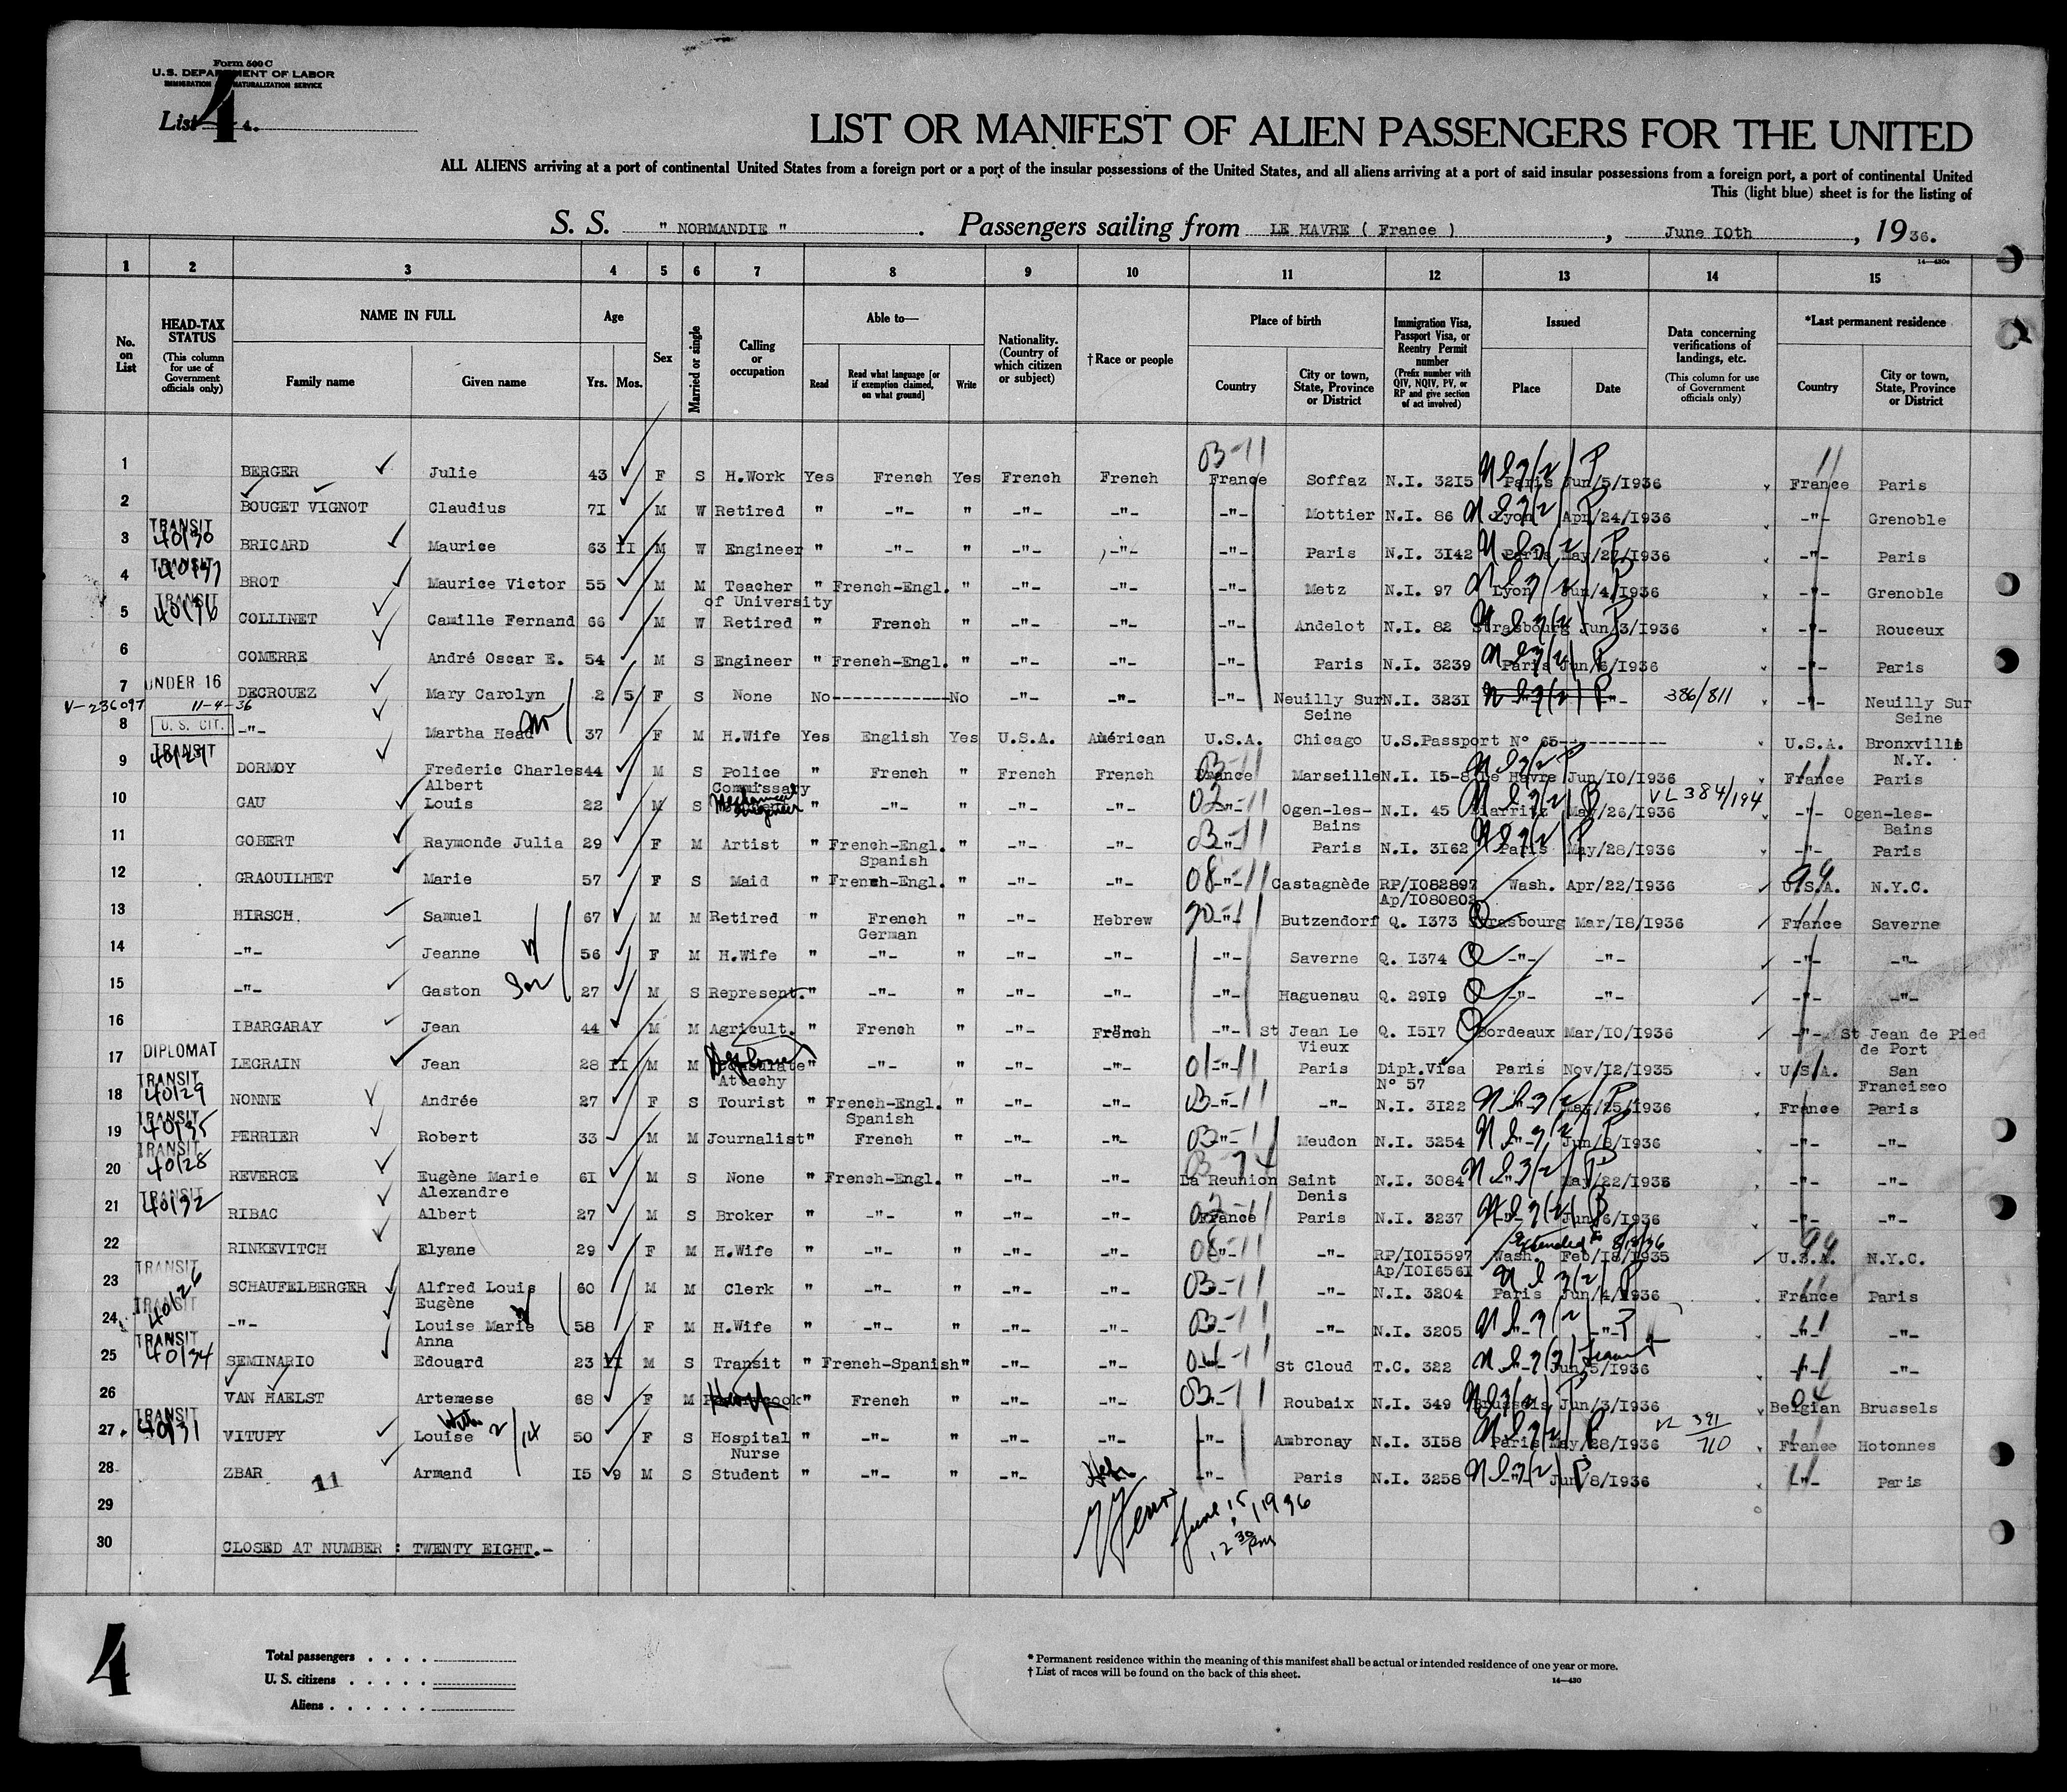 Form 500 C
U.S. DEPARTMENT OF LABOR
IMMIGRATION NATURALIZATION SERVICE
List 4.
4
LIST OR MANIFEST OF ALIEN PASSENGERS FOR THE UNITED
ALL ALIENS arriving at a port of continental United States from a foreign port or a port of the insular possessions of the United States, and all aliens arriving at a port of said insular possessions from a foreign port, a port of continental United
This (light blue) sheet is for the listing of
S. S. " NORMANDIE ". Passengers sailing from LE HAVRE ( France ), June 10th, 1936.
14—430a
1 2 3 4 5 6 7 8 9 10 11 12 13 14 15
No. on List
HEAD-TAX STATUS (This column for use of Government officials only)
NAME IN FULL Family name Given name
Age Yrs. Mos.
Sex
Married or single
Calling or occupation
Able to— Read Read what language [or if exemption claimed, on what ground] Write
Nationality. (Country of which citizen or subject)
†Race or people
Place of birth Country City or town, State, Province or District
Immigration Visa, Passport Visa, or Reentry Permit number (Prefix number with QIV, NQIV, PV, or RP and give section of act involved)
Issued Place Date
Data concerning verifications of landings, etc. (This column for use of Government officials only)
*Last permanent residence Country City or town, State, Province or District
1 BERGER Julie 43 F S H.Work Yes French Yes French French 03-11 France Soffaz N.I. 3215 Paris Jun/5/1936 France Paris
2 BOUGET VIGNOT Claudius 71 M W Retired " -"- " -"- -"- -"- Mottier N.I. 86 Lyon Apr/24/1936 -"- Grenoble
3 TRANSIT 40130 BRICARD Maurice 63 II M W Engineer " -"- " -"- -"- -"- Paris N.I. 3142 Paris May/27/1936 -"- Paris
4 TRANSIT BROT Maurice Victor 55 M M Teacher of University " French-Engl. " -"- -"- -"- Metz N.I. 97 Lyon Jun/4/1936 -"- Grenoble
5 TRANSIT COLLINET Camille Fernand 66 M W Retired " French " -"- -"- -"- Andelot N.I. 82 Strasbourg Jun/3/1936 -"- Rouceux
6 COMERRE André Oscar E. 54 M S Engineer " French-Engl. " -"- -"- -"- Paris N.I. 3239 Paris Jun/6/1936 -"- Paris
7 UNDER 16 DECROUEZ Mary Carolyn 2 5 F S None No------------No -"- -"- -"- Neuilly Sur Seine N.I. 3231 -"- 386/811 -"- Neuilly Sur Seine
V-236097 11-4-36
8 U.S. CIT. -"- Martha Head 37 F M H.Wife Yes English Yes U.S.A. Américan U.S.A. Chicago U.S.Passport N° 65----------- U.S.A. Bronxville N.Y.
9 TRANSIT DORMOY Frederic Charles Albert 44 M S Police Commissary " French " French French 03-11 France Marseille N.I. 15-8 Le Havre Jun/10/1936 France Paris
10 GAU Louis 22 M S Mechanical Engineer " -"- " -"- -"- 02-11 Ogen-les-Bains N.I. 45 Biarritz May/26/1936 VL 384/194 -"- Ogen-les-Bains
11 GOBERT Raymonde Julia 29 F M Artist " French-Engl. Spanish " -"- -"- 03-11 Paris N.I. 3162 Paris May/28/1936 -"- Paris
12 GRAOUILHET Marie 57 F S Maid " French-Engl. " -"- -"- 08-11 Castagnède RP/1082897 Ap/1080802 Wash. Apr/22/1936 99 U.S.A. N.Y.C.
13 HIRSCH Samuel 67 M M Retired " French German " -"- Hebrew 20-11 Butzendorf Q. 1373 Strasbourg Mar/18/1936 France Saverne
14 -"- Jeanne 56 F M H.Wife " -"- " -"- -"- -"- Saverne Q. 1374 -"- -"- -"- -"-
15 -"- Gaston Son 27 M S Represent. " -"- " -"- -"- -"- Haguenau Q. 2919 -"- -"- -"- -"-
16 IBARGARAY Jean 44 M M Agricult. " French " -"- French -"- St Jean Le Vieux Q. 1517 Bordeaux Mar/10/1936 -"- St Jean de Pied de Port
17 DIPLOMAT LEGRAIN Jean 28 II M M Consulate Attachy " -"- " -"- -"- 01-11 Paris Dipl.Visa N° 57 Paris Nov/12/1935 U.S.A. San Francisco
18 TRANSIT 40129 NONNE Andrée 27 F S Tourist " French-Engl. Spanish " -"- -"- 03-11 -"- N.I. 3122 -"- May/25/1936 France Paris
19 TRANSIT 40135 PERRIER Robert 33 M M Journalist " French " -"- -"- 03-11 Meudon N.I. 3254 -"- Jun/8/1936 -"- -"-
20 TRANSIT 40128 REVERCE Eugène Marie Alexandre 61 M S None " French-Engl. " -"- -"- La Reunion Saint Denis N.I. 3084 -"- May/22/1936 -"- -"-
21 TRANSIT 40132 RIBAC Albert 27 M S Broker " -"- " -"- -"- 02-11 France Paris N.I. 3237 -"- Jun/6/1936 -"- -"-
22 RINKEVITCH Elyane 29 F M H.Wife " -"- " -"- -"- 08-11 -"- RP/1015597 Ap/1016561 Wash. Feb/18/1935 Extended to 8/18/36 99 U.S.A. N.Y.C.
23 TRANSIT 40126 SCHAUFELBERGER Alfred Louis Eugène 60 M M Clerk " -"- " -"- -"- 03-11 -"- N.I. 3204 Paris Jun/4/1936 France Paris
24 TRANSIT -"- Louise Marie Anna 58 F M H.Wife " -"- " -"- -"- 03-11 -"- N.I. 3205 -"- -"- -"- -"-
25 TRANSIT 40134 SEMINARIO Edouard 23 II M S Transit " French-Spanish " -"- -"- St Cloud T.C. 322 -"- Jun/5/1936 Transit -"- -"-
26 VAN HAELST Artemese 68 F M cook " French " -"- -"- 03-11 Roubaix N.I. 349 Brussels Jun/3/1936 04 Belgian Brussels
27 TRANSIT 40131 VITUPY Louise 50 F S Hospital Nurse " -"- " -"- -"- -"- Ambronay N.I. 3158 Paris May/28/1936 VL 391/710 France Hotonnes
28 ZBAR Armand 15 9 M S Student " -"- " -"- Heb. -"- Paris N.I. 3258 -"- Jun/8/1936 -"- Paris
11
29
June 15, 1936
12 30 pm
30 CLOSED AT NUMBER : TWENTY EIGHT.-
4
Total passengers . . . .
U. S. citizens . . . . .
Aliens . . . . . .
* Permanent residence within the meaning of this manifest shall be actual or intended residence of one year or more.
† List of races will be found on the back of this sheet.
14—430